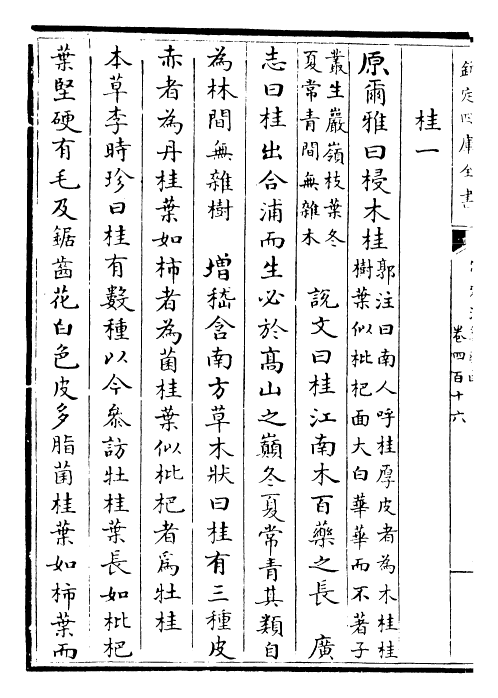 欽定四庫全書
卷四百十六
桂一
原爾雅曰梫木桂
郭注曰南人呼桂厚皮者為木桂桂
樹葉似枇杷面大白華華而不著子
叢生巖嶺枝葉冬
夏常青間無雜木
說文曰桂江南木百藥之長　廣
志曰桂出合浦而生必於高山之巔冬夏常青其類自
為林間無雜樹　增嵇含南方草木狀曰桂有三種皮
赤者為丹桂葉如柿者為菌桂葉似枇杷者爲牡桂
本草李時珍曰桂有數種以今叅訪牡桂葉長如枇杷
葉堅硬有毛及鋸齒花白色皮多脂菌桂葉如柿葉而